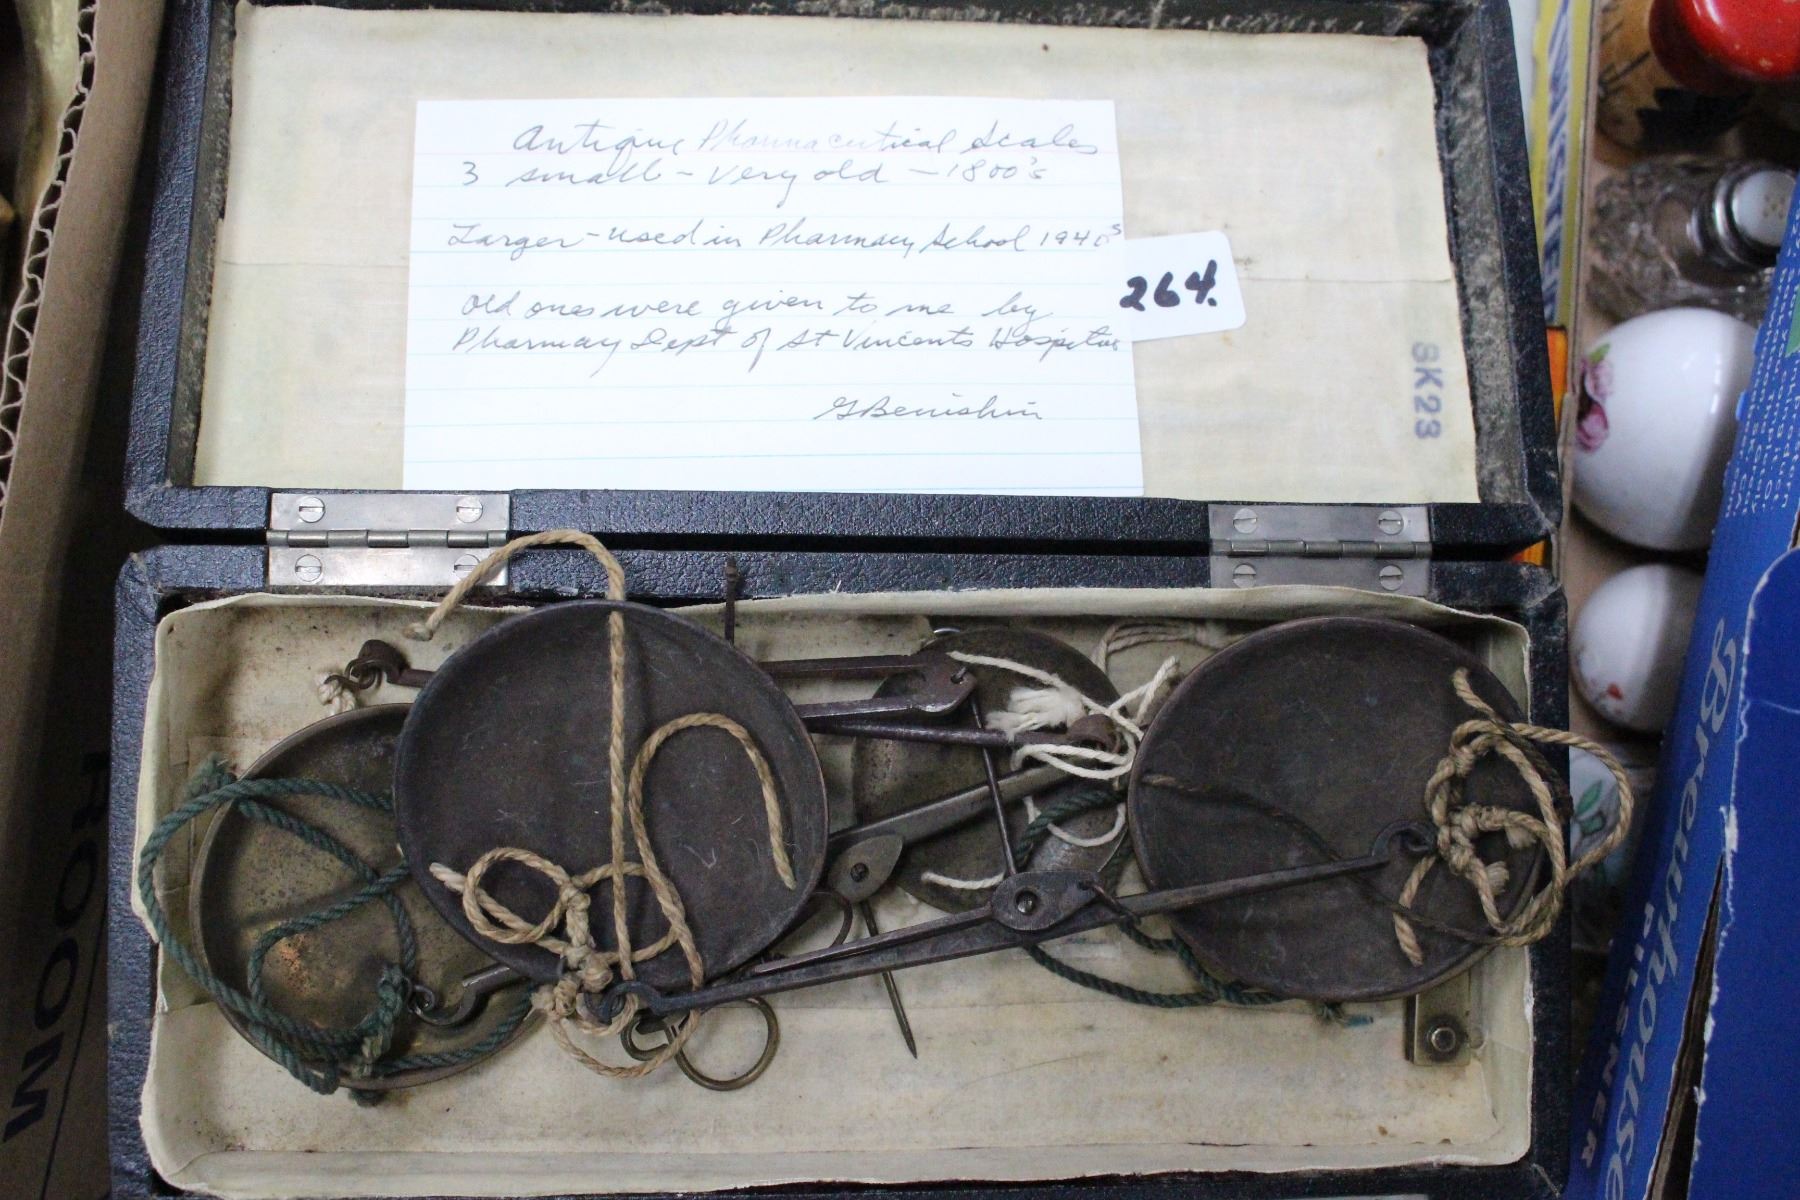 Antique Pharmaceutical Scales
3 small - very old - 1800's
Larger - used in Pharmacy School 1940s
Old ones were given to me by
Pharmacy Dept of St Vincents Hospital
GBenishin
264.
SK23
ROOM
Brewhouse
PILSNER